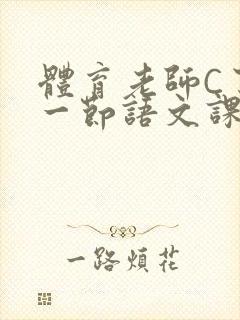 體育老師C
一節語文課
一路煩花